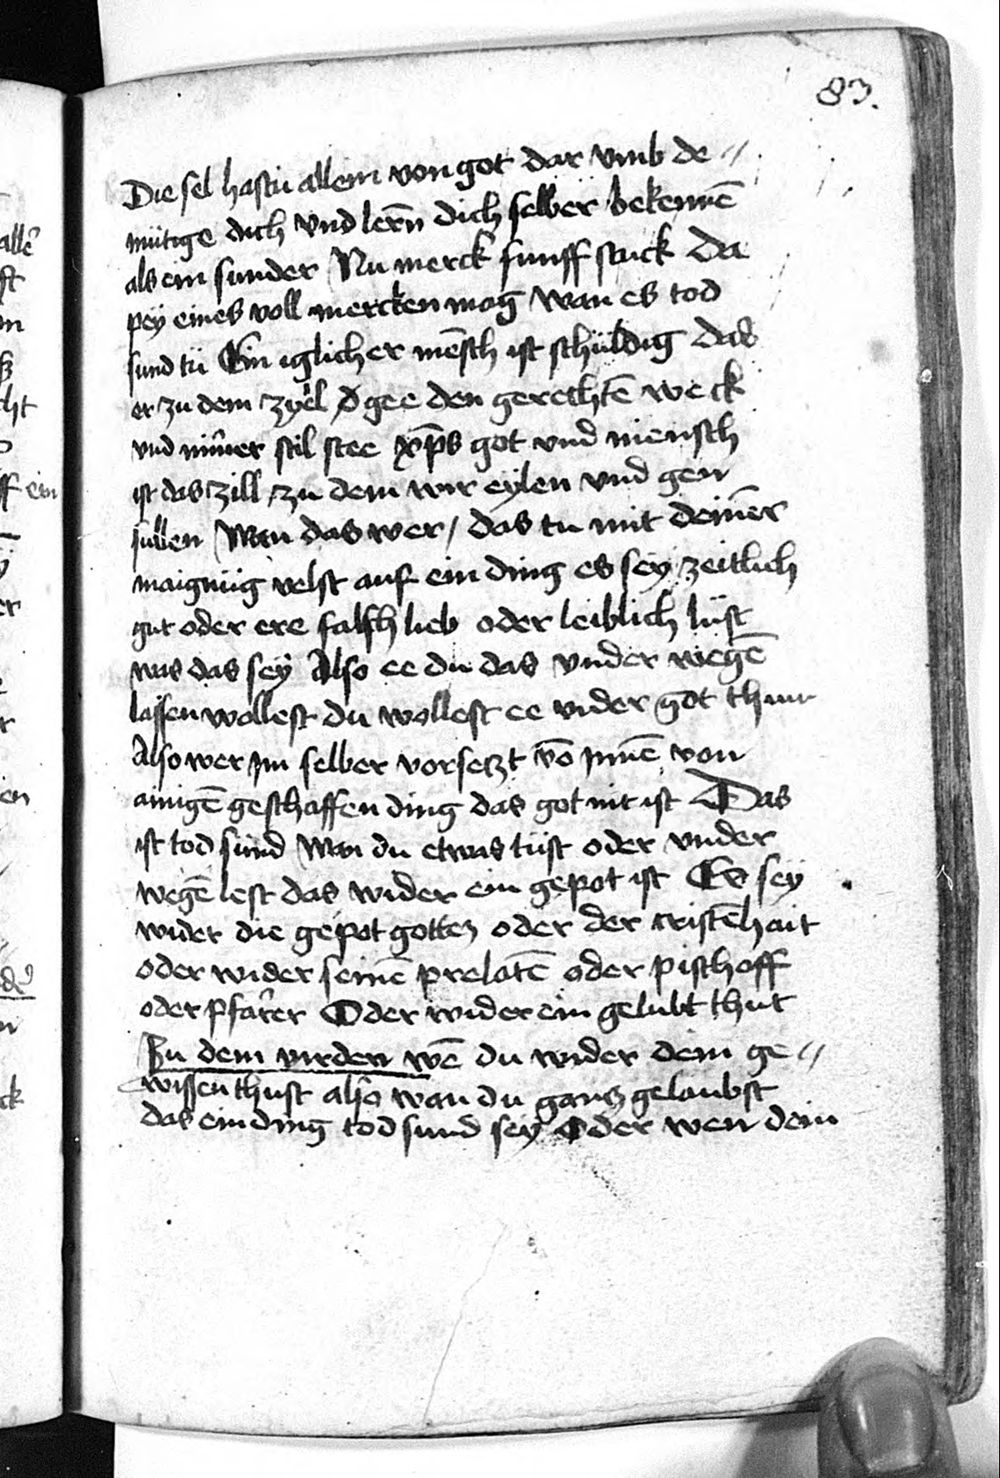 83.
Die sel hastu allein von got dar vmb de //
mütige dich vnd lern̄ dich selber bekenne᷑
als ein sunder Nu merck funff stuck Da
pey eines woll mercken mag wan es tod
sund tü Ein iglicher me᷑sch ist schuldig das
er zu dem zyel gee den gerechte᷑ weck
vnd nim̄er stil stee xp̄s got vnd mensch
ist das zill zu dem wir eylen vnd gen
sullen Wan das wer / das tu mit deiner
maignüg velst auf ein ding es sey zeitlich
gut oder ere falsch lieb oder leiblich lust
was das sey Also ee du das vnder wege᷑
lassen wollest du wollest ee wider got thun
Also wer jm selber vorsetzt von
ainige᷑ geschaffen ding das got nit ist Das
ist tod sünd Wan du etwas tüst oder vnder
wege᷑ lest das wider ein gepot ist Es sey
wider die gepot gottez oder der criste᷑hait
oder wider seine᷑ prelate᷑ oder pischoff
oder pfarrer Oder wider ein gelubt thut
Zu dem virden we᷑ du wider dein ge //
wissen thust also wan du gantz gelaubst
das ein ding tod sund sey Oder wen dein